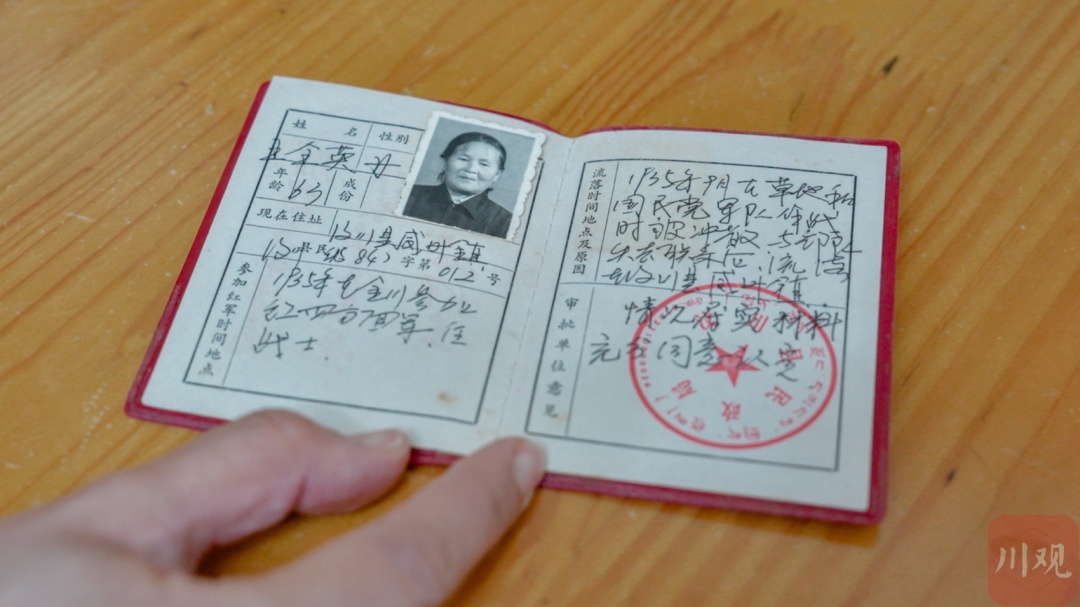 姓 名 性别
王全英 女
年龄 63 成份
现在住址 汶川县威州镇
汶川县民政(84)字第012号
参加红军时间地点
1935年在金川参加
红四方面军、任
战士.
流落时间地点及原因
1935年9月在草地和
国民党军队作战
时被冲散、与部队
失去联系后、流落
在汶川县威州镇.
审批单位意见
情况属实材料
充分同意认定
民政局
川观